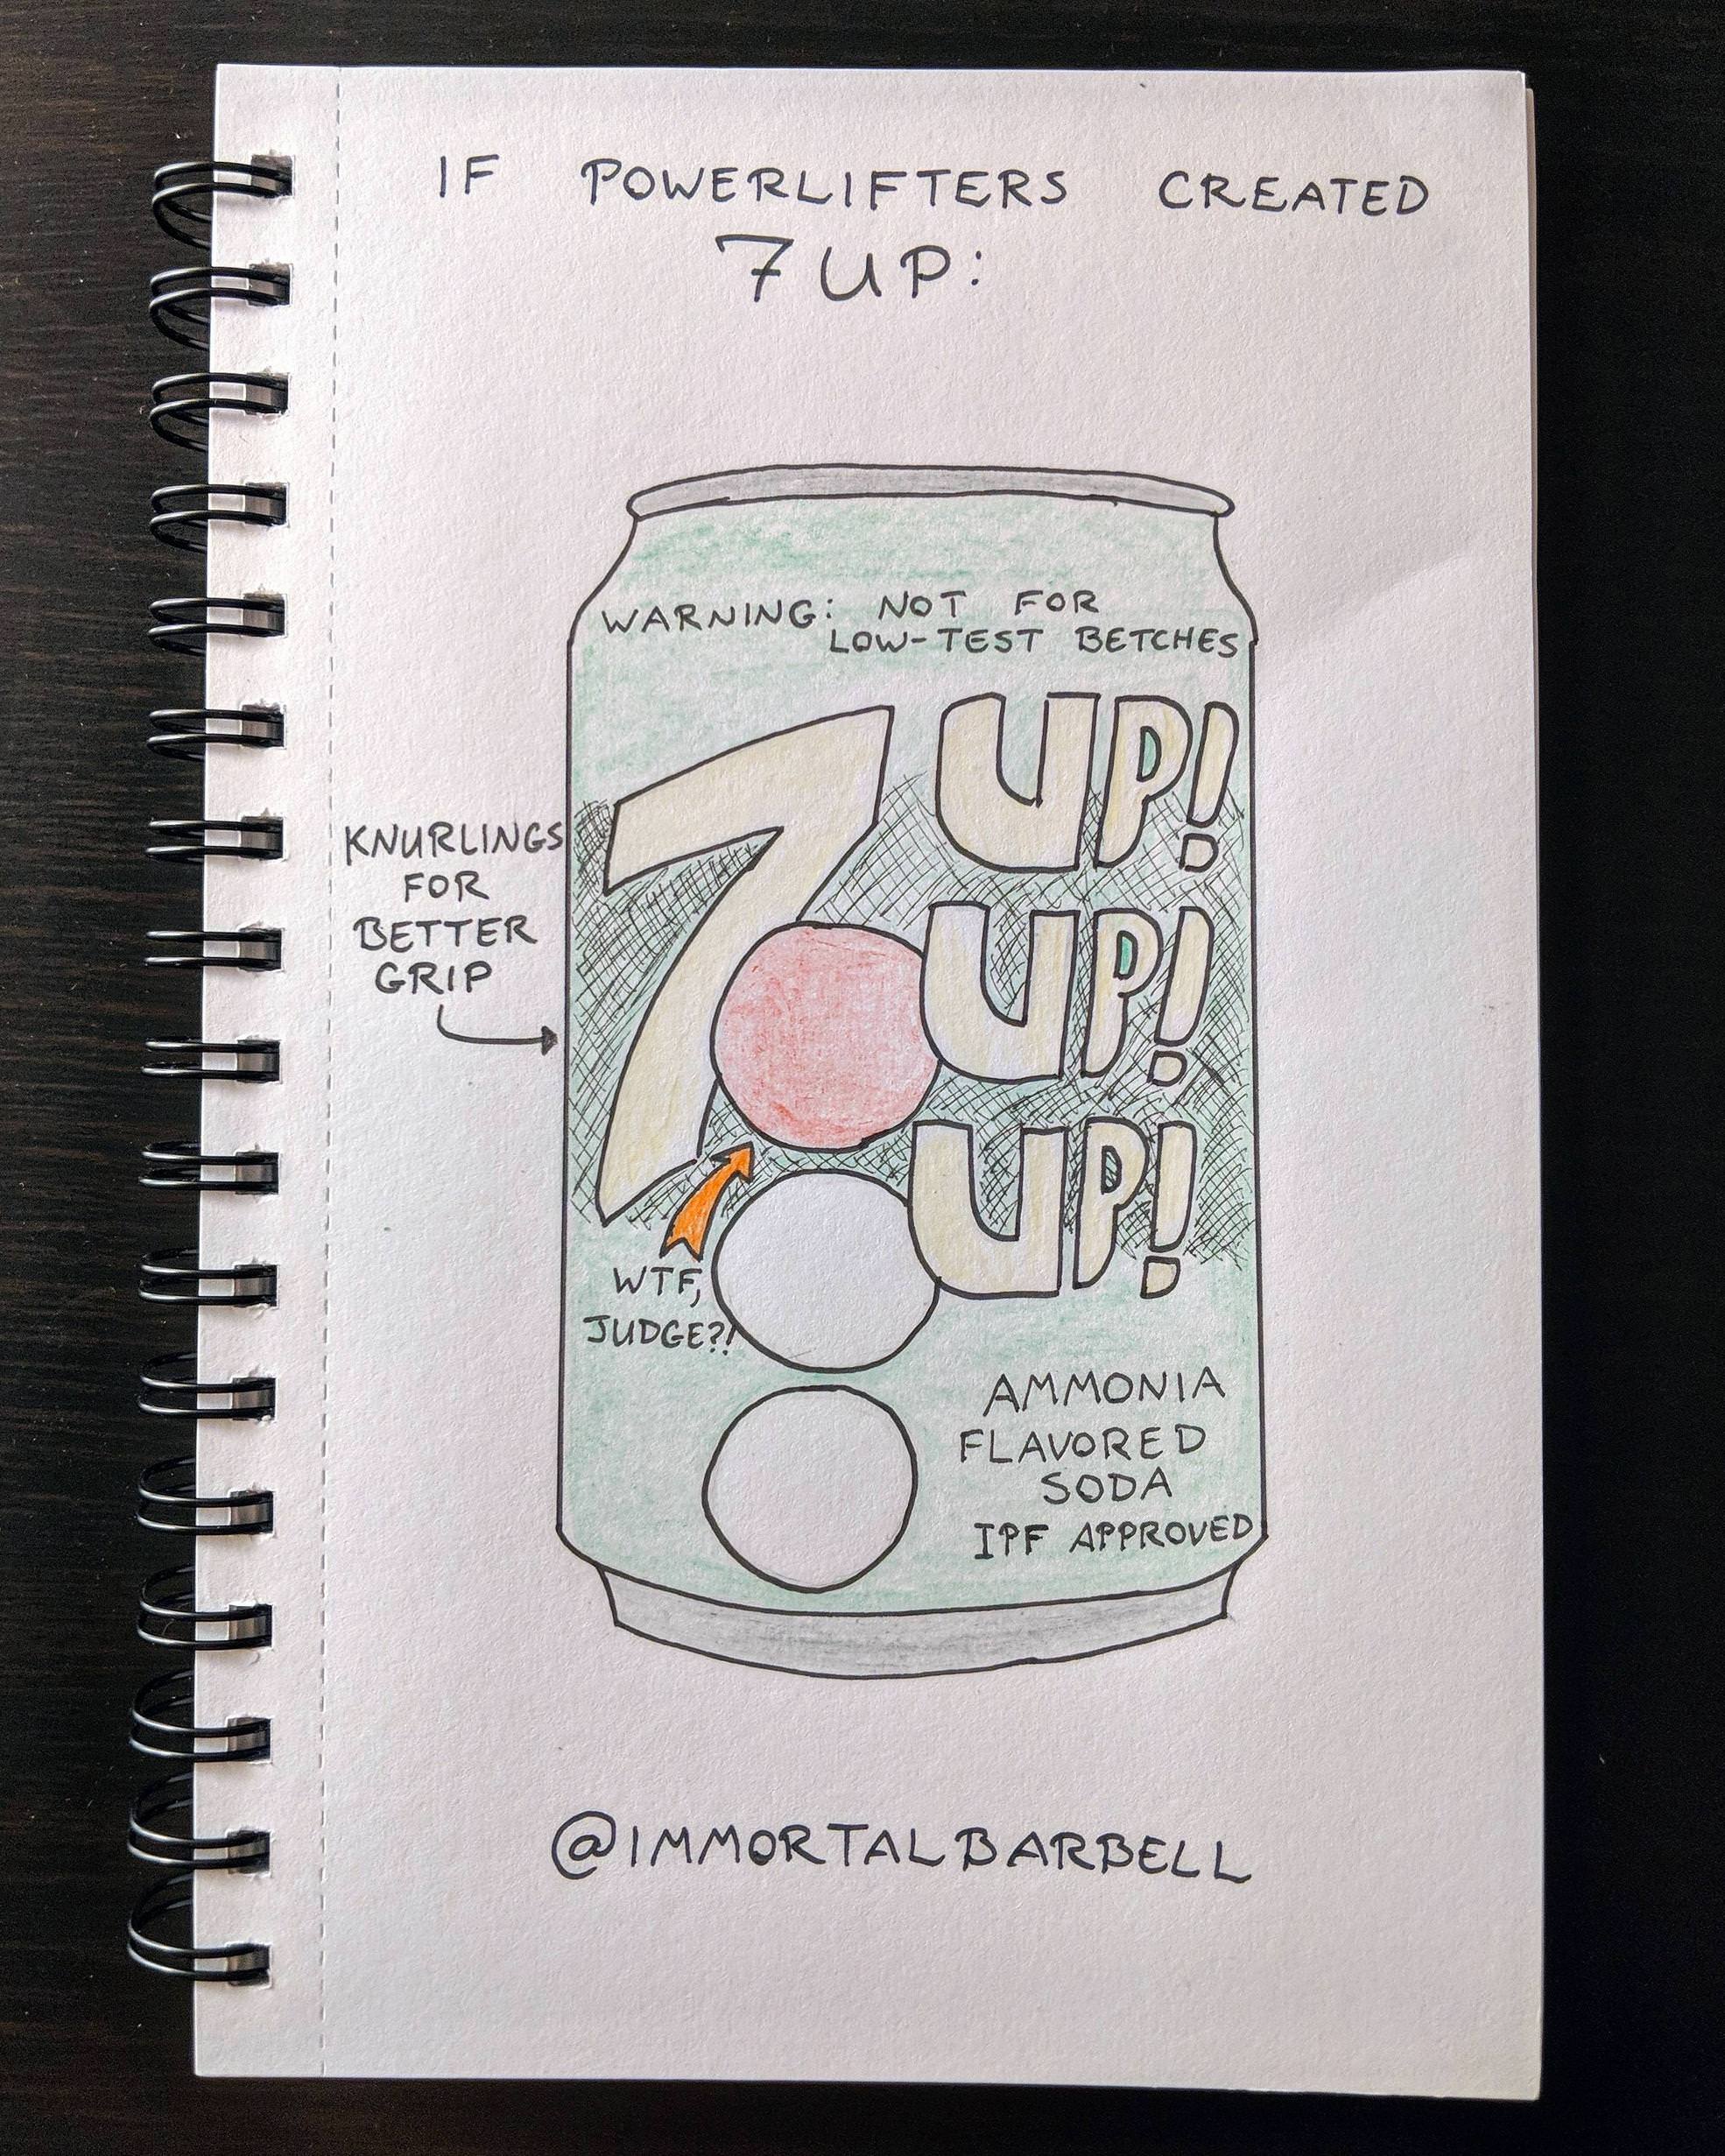 IF POWERLIFTERS CREATED
7UP:
WARNING: NOT FOR
LOW-TEST BETCHES
7 UP!
UP!
UP!
KNURLINGS
FOR
BETTER
GRIP
WTF,
JUDGE?!
AMMONIA
FLAVORED
SODA
IPF APPROVED
@IMMORTALBARBELL